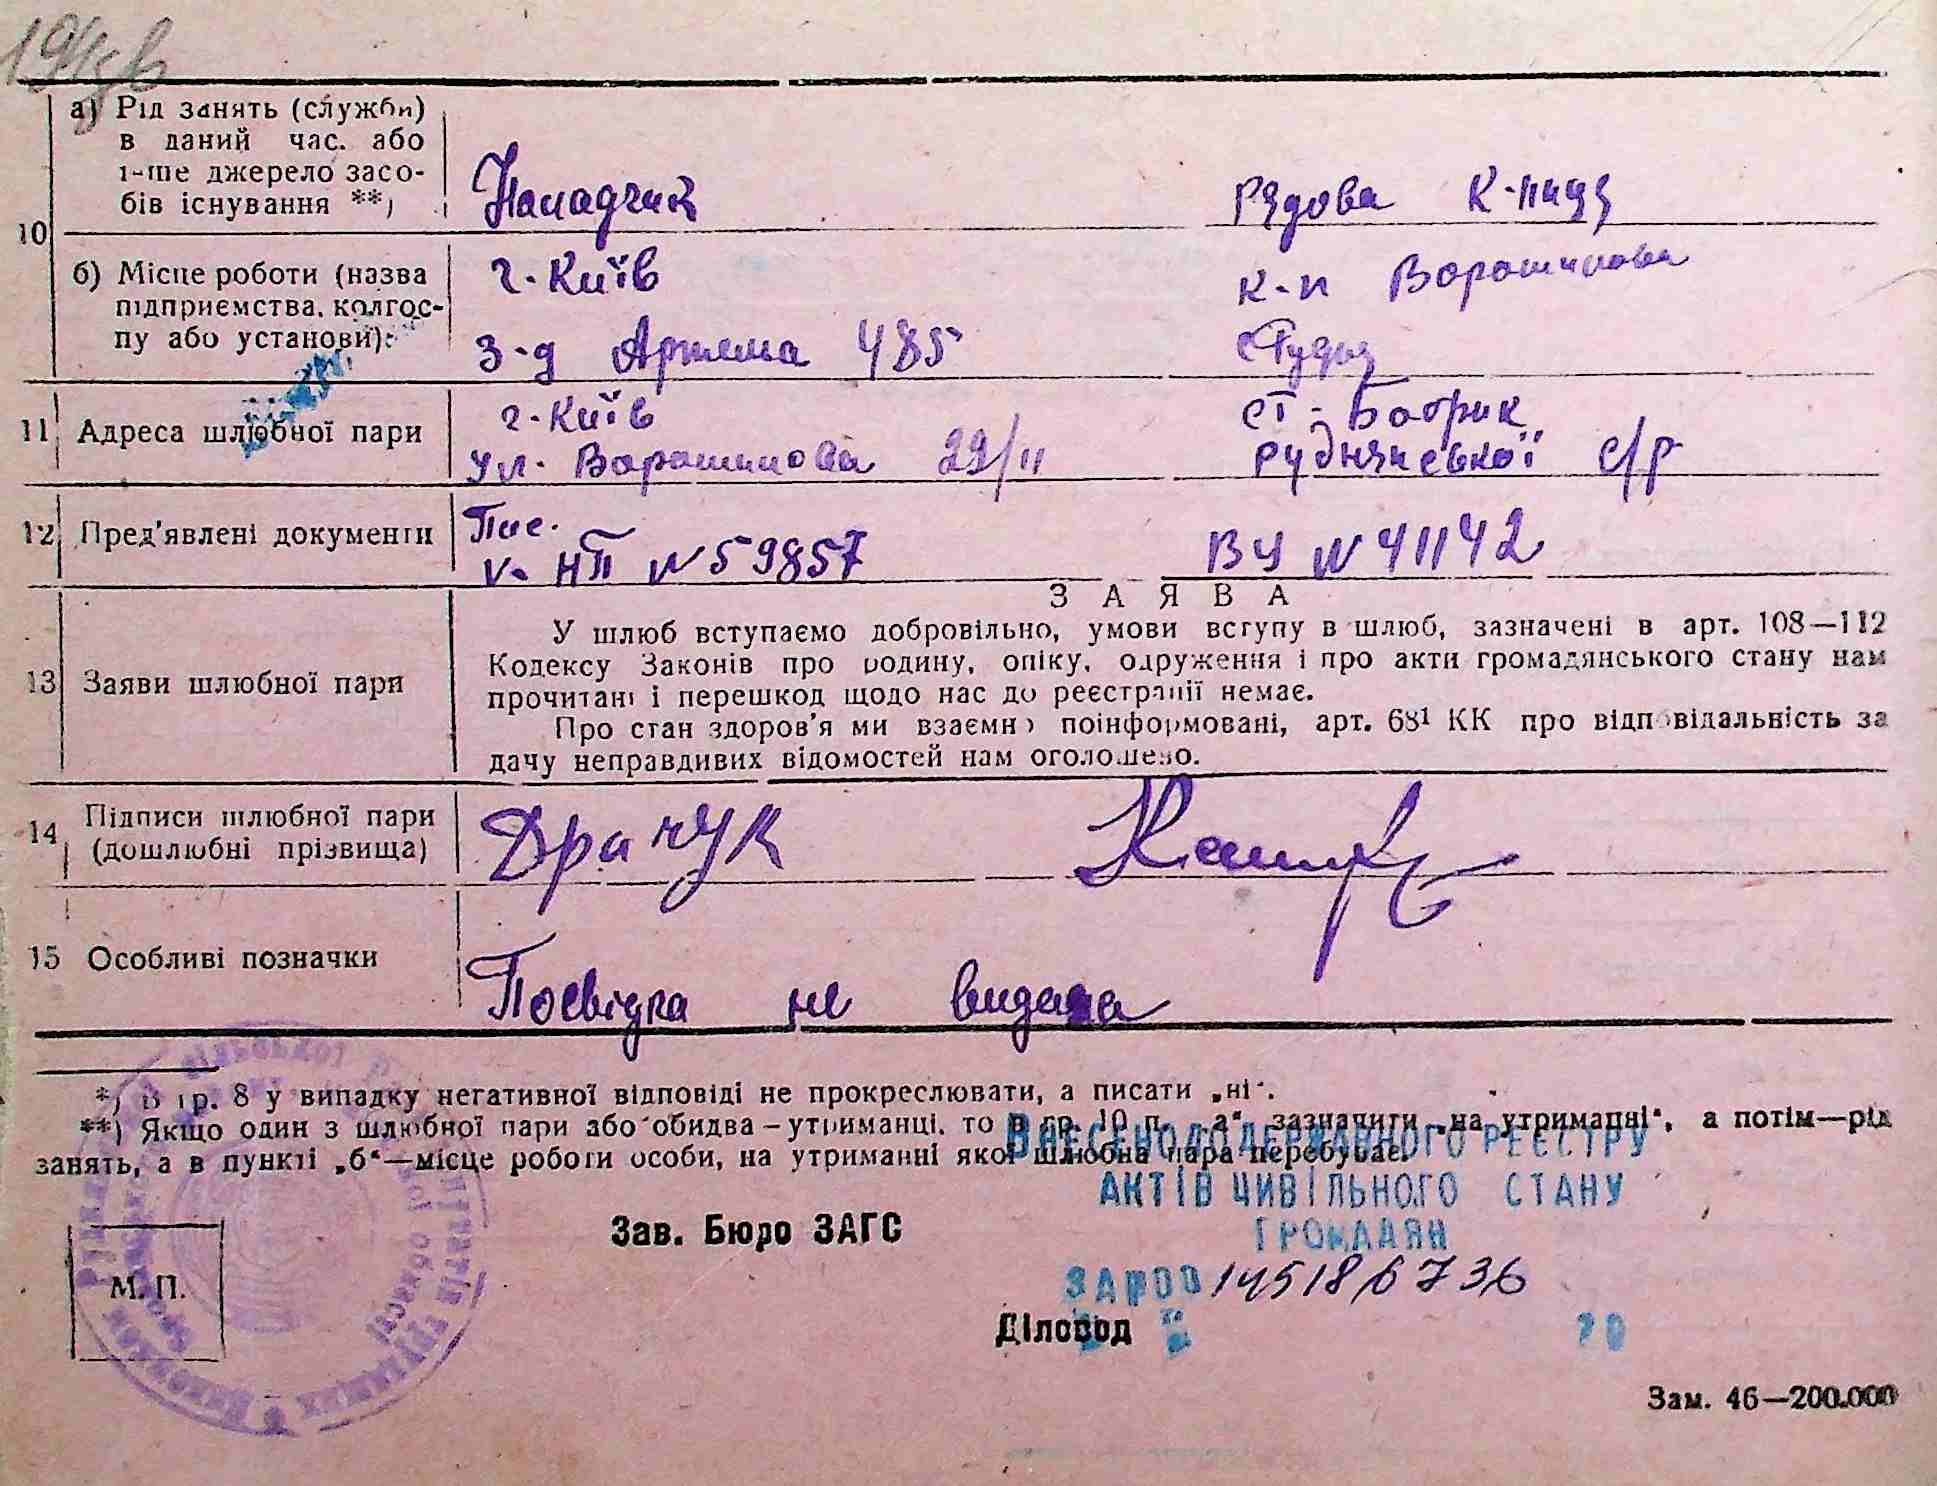 10
а) Рід занять (служби)
в даний час, або
інше джерело засо-
бів існування **)
Наладчик
Рядова к-пиця
б) Місце роботи (назва
підприємства, колгос-
пу або установи):
г. Київ
з-д Артема 485
к-п Ворошилова
11 Адреса шлюбної пари
г. Київ
ул. Ворошилова 29/11
ст. Бобрик
Рудняської с/р
12 Пред'явлені документи
Пас.
V- НП № 59857
ВЧ № 41142
ЗАЯВА
13 Заяви шлюбної пари
У шлюб вступаємо добровільно, умови вступу в шлюб, зазначені в арт. 108—112
Кодексу Законів про родину, опіку, одруження і про акти громадянського стану нам
прочитані і перешкод щодо нас до реєстрації немає.
Про стан здоров'я ми взаємно поінформовані, арт. 68¹ КК про відповідальність за
дачу неправдивих відомостей нам оголошено.
14 Підписи шлюбної пари
(дошлюбні прізвища)
Драчук
15 Особливі позначки
Посвідка не видана
*) В гр. 8 у випадку негативної відповіді не прокреслювати, а писати „ні“.
**) Якщо один з шлюбної пари або обидва — утриманці, то в гр. 10 п. „а“ зазначити „на утриманні“, а потім—рід
занять, а в пункті „б“—місце роботи особи, на утриманні якої шлюбна пара перебуває.
ВНЕСЕНО ДО ДЕРЖАВНОГО РЕЄСТРУ
АКТІВ ЦИВІЛЬНОГО СТАНУ
ГРОМАДЯН
Зав. Бюро ЗАГС
ЗА №00 145186736
М. П.
Діловод
20
Зам. 46—200.000